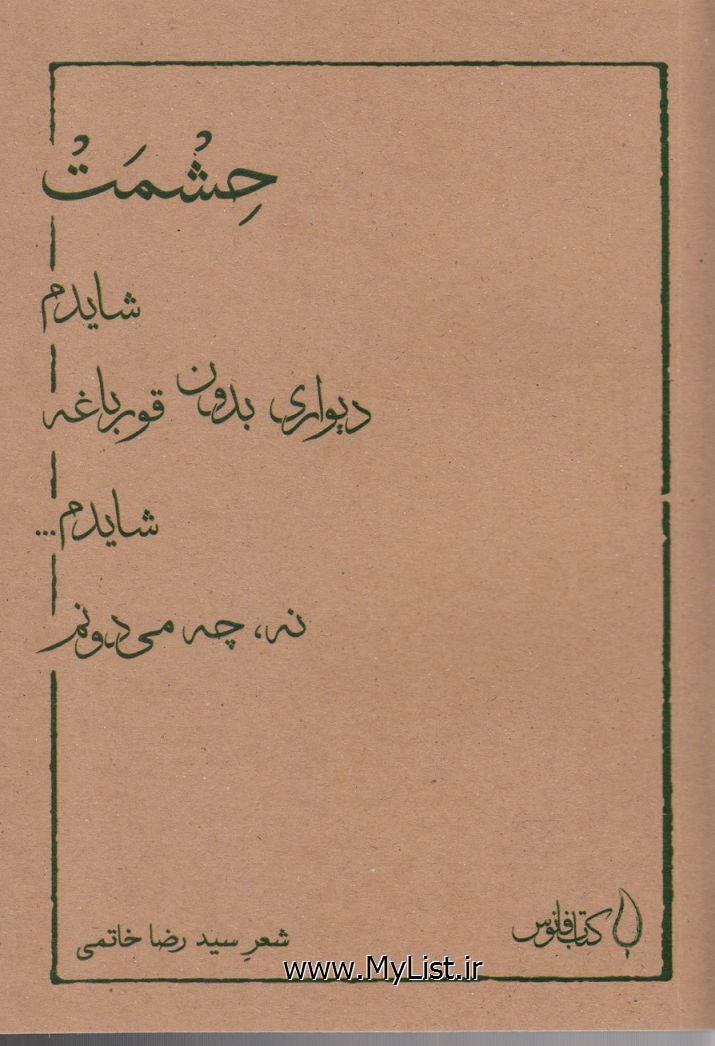 حِشْمَتْ
شایدم
دیواری بدون قورباغه
شایدم...
نه، چه می‌دونم
کتاب فانوس
شعرِ سید رضا خاتمی
www.MyList.ir